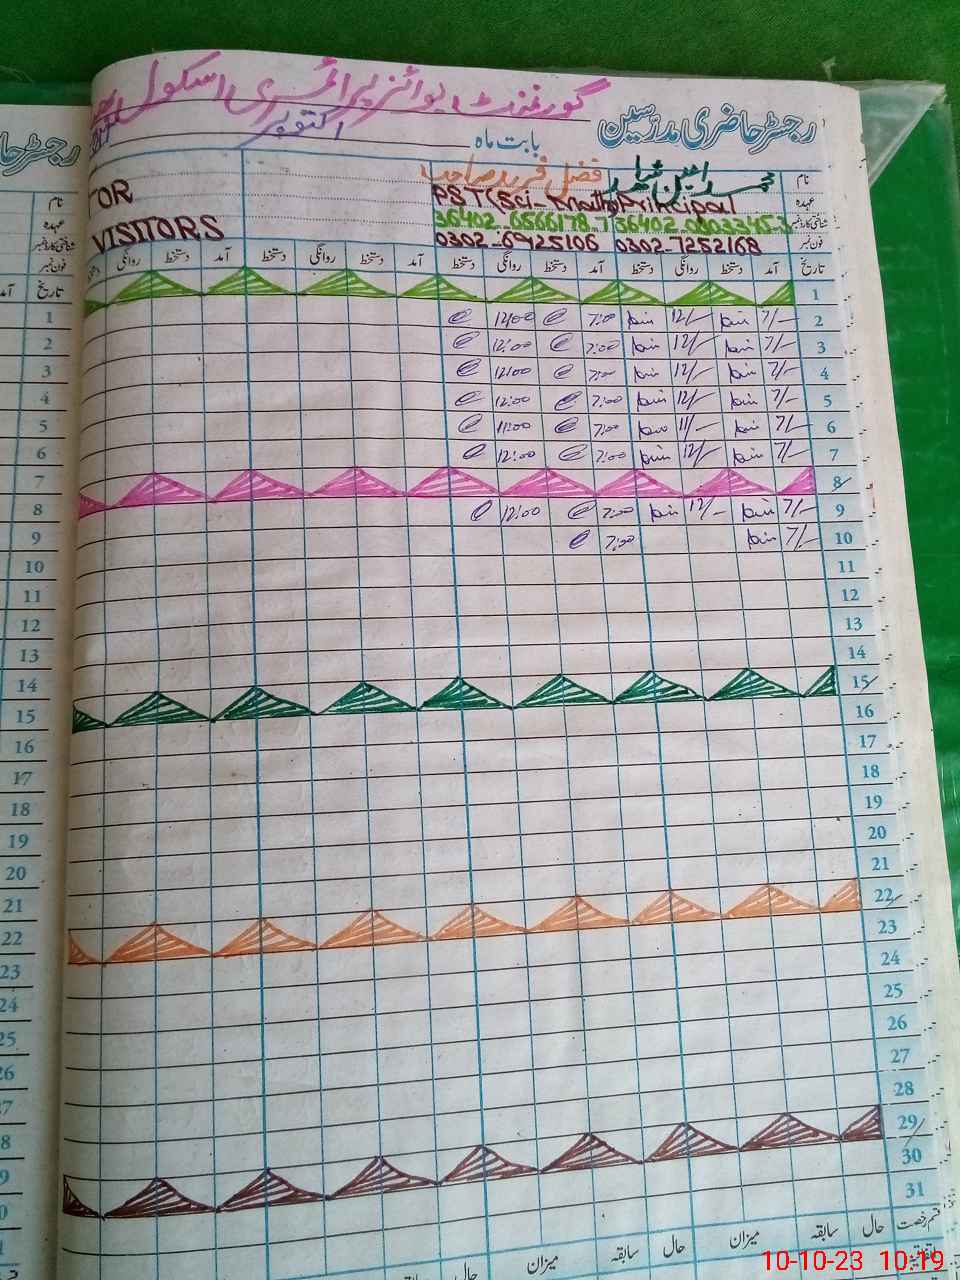 گورنمنٹ بوائز پرائمری اسکول
رجسٹر حاضری مدرسین
بابت ماہ اکتوبر
نام محمد امین فضل فرید صاحب
عہدہ Principal PST (Sci-Math) TOR
شناختی کارڈ نمبر
فون نمبر 0302-7252168 0302-6925106 VISITORS
تاریخ آمد دستخط روانگی دستخط آمد دستخط روانگی دستخط آمد دستخط روانگی دستخط آمد دستخط روانگی
1
2 7/- 12/- 7:00 12:00
3 7/- 12/- 7:00 12:00
4 7/- 12/- 7:00 12:00
5 7/- 12/- 7:00 12:00
6 7/- 11/- 7:00 11:00
7 7/- 12/- 7:00 12:00
8
9 7/- 12/- 7:00 12:00
10 7/- 7:00
11
12
13
14
15
16
17
18
19
20
21
22
23
24
25
26
27
28
29
30
31
قسم رخصت حال سابقہ میزان حال سابقہ میزان حال سابقہ
رجسٹر حا
نام
عہدہ
شناختی کارڈ نمبر
فون نمبر
تاریخ آمد
1
2
3
4
5
6
7
8
9
10
11
12
13
14
15
16
17
18
19
20
21
22
23
24
25
10-10-23 10:19